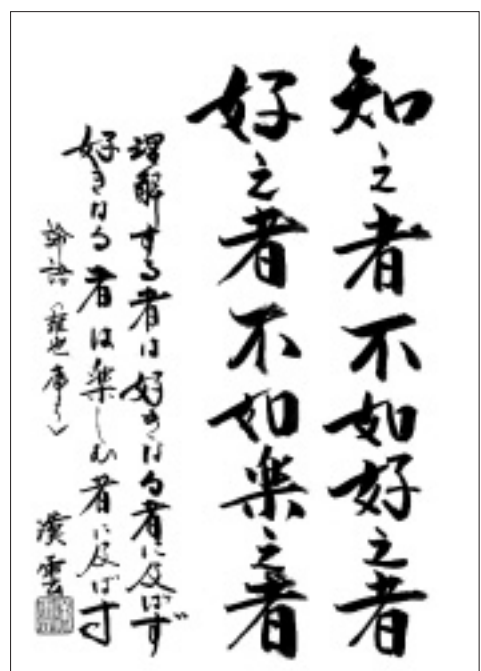 知之者不如好之者
好之者不如楽之者
理解する者は好きになる者に及ばず
好きになる者は楽しむ者に及ばず
論語〈雍也篇〉
漢雲